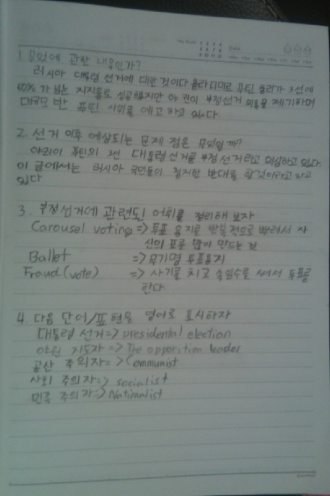 1. 무엇에 관한 내용인가?
러시아 대통령 선거에 대한 것이다 블라디미르 푸틴 총리가 3선에
60%가 넘는 지지율도 성공했지만 야권이 부정선거 의혹을 제기하며
대규모 반 푸틴 시위를 예고 하고 있다.
2. 선거 이후 예상되는 문제 점은 무엇일까?
야권이 푸틴의 3선 대통령선거를 부정 선거라고 의심하고 있다
이 글에서는 러시아 국민들이 정치한 반대를 할것이라고 하고
있다
3. 부정선거에 관련된 어휘를 정리해 보자
Carousel voting => 투표 용지를 받을 것으로 빼내서 자
신의 표를 많이 만드는 것
Ballet => 무기명 투표용지
Fraud (vote) => 사기를 치고 속임수를 써서 투표를
한다
4. 다음 단어/표현을 영어로 표시하자
대통령 선거=> presidential election
야권 지도자 => The opposition leader
공산 주의자=> Communist
사회 주의자=> socialist
민족 주의자=> Nationalist